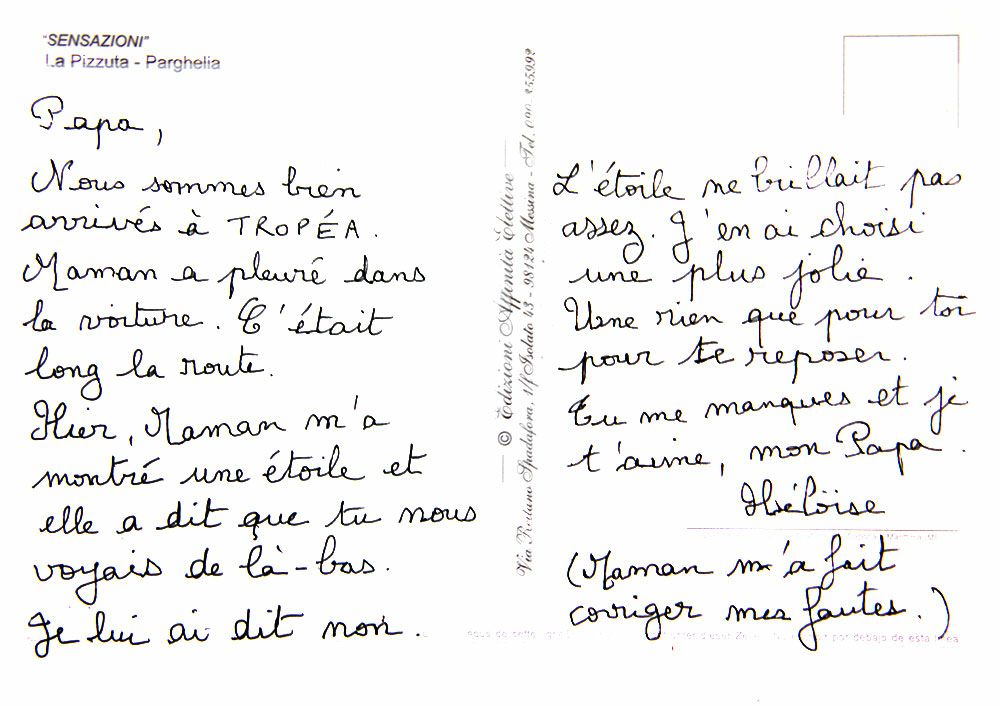 "SENSAZIONI"
La Pizzuta - Parghelia
Papa,
Nous sommes bien
arrivés à TROPÉA.
Maman a pleuré dans
la voiture. C'était
long la route.
Hier, Maman m'a
montré une étoile et
elle a dit que tu nous
voyais de là-bas.
Je lui ai dit non.
© Edizioni Affinità Elettive
Via Romano Spadafora, 1/f Isolato 43 - 98124 Messina - Tel. 090
L'étoile ne brillait pas
assez. J'en ai choisi
une plus jolie.
Une rien que pour toi
pour te reposer.
Tu me manques et je
t'aime, mon Papa.
Héloïse
(Maman m'a fait
corriger mes fautes.)
por debajo de esta línea